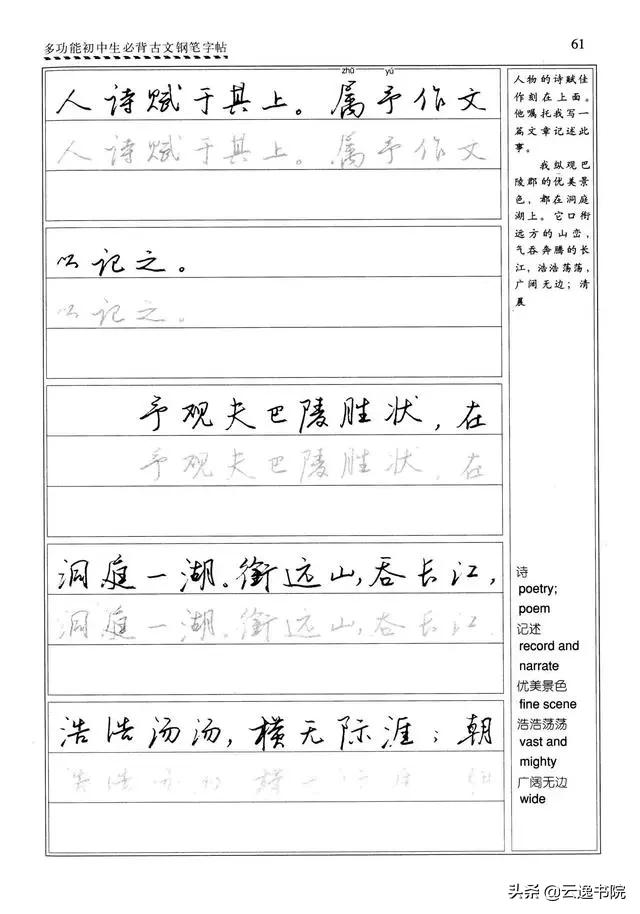 多功能初中生必背古文钢笔字帖
61
zhǔ yú
人诗赋于其上。属予作文
人诗赋于其上。属予作文
以记之。
以记之。
予观夫巴陵胜状,在
予观夫巴陵胜状,在
洞庭一湖。衔远山,吞长江,
洞庭一湖。衔远山,吞长江,
浩浩汤汤,横无际涯;朝
浩浩汤汤 横无际涯 朝
人物的诗赋佳
作刻在上面。
他嘱托我写一
篇文章记述此
事。
我纵观巴
陵郡的优美景
色,都在洞庭
湖上。它口衔
远方的山峦,
气吞奔腾的长
江,浩浩荡荡,
广阔无边;清
晨
诗
poetry;
poem
记述
record and
narrate
优美景色
fine scene
浩浩荡荡
vast and
mighty
广阔无边
wide
头条@云逸书院